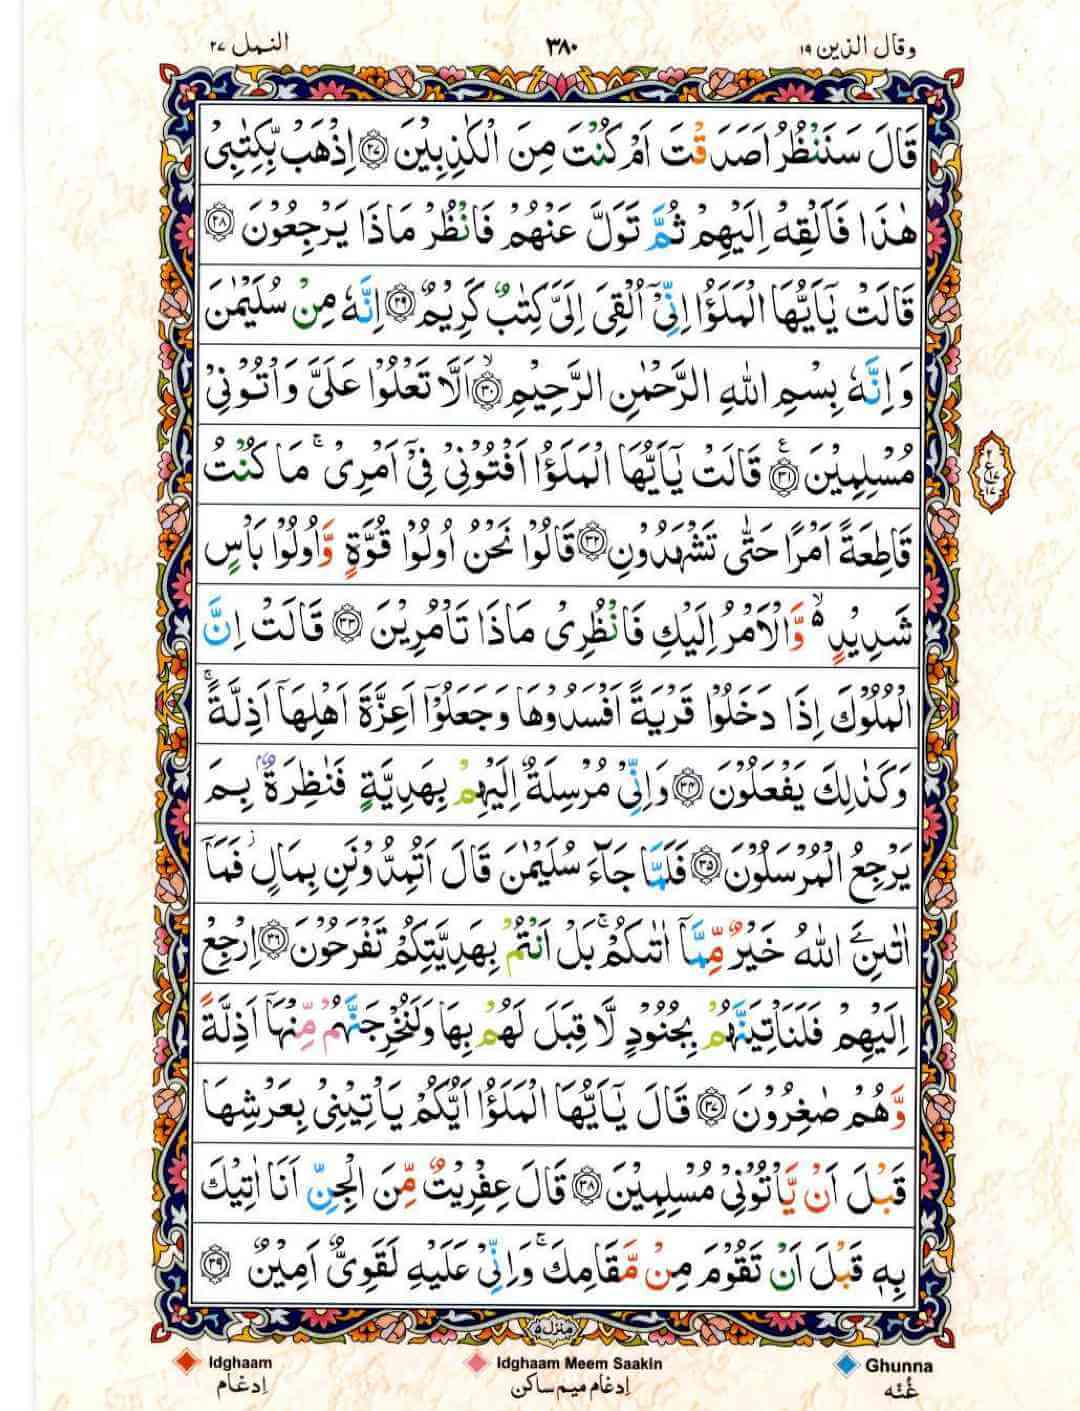 وقال الذين ١٩
٣٨٠
النمل ٢٧
قَالَ سَنَنْظُرُ اَصَدَقْتَ اَمْ كُنْتَ مِنَ الْكٰذِبِيْنَ ۝٢٧ اِذْهَبْ بِّكِتٰبِيْ
هٰذَا فَاَلْقِهْ اِلَيْهِمْ ثُمَّ تَوَلَّ عَنْهُمْ فَانْظُرْ مَاذَا يَرْجِعُوْنَ ۝٢٨
قَالَتْ يٰۤاَيُّهَا الْمَلَؤُا اِنِّيْۤ اُلْقِيَ اِلَيَّ كِتٰبٌ كَرِيْمٌ ۝٢٩ اِنَّهٗ مِنْ سُلَيْمٰنَ
وَاِنَّهٗ بِسْمِ اللّٰهِ الرَّحْمٰنِ الرَّحِيْمِ ۝٣٠ۙ اَلَّا تَعْلُوْا عَلَيَّ وَاْتُوْنِيْ
مُسْلِمِيْنَ ۝٣١ع قَالَتْ يٰۤاَيُّهَا الْمَلَؤُا اَفْتُوْنِيْ فِيْۤ اَمْرِيْ ۚ مَا كُنْتُ
قَاطِعَةً اَمْرًا حَتّٰى تَشْهَدُوْنِ ۝٣٢ قَالُوْا نَحْنُ اُولُوْا قُوَّةٍ وَّاُولُوْا بَاْسٍ
شَدِيْدٍ ۙ۬ وَّالْاَمْرُ اِلَيْكِ فَانْظُرِيْ مَاذَا تَاْمُرِيْنَ ۝٣٣ قَالَتْ اِنَّ
الْمُلُوْكَ اِذَا دَخَلُوْا قَرْيَةً اَفْسَدُوْهَا وَجَعَلُوْۤا اَعِزَّةَ اَهْلِهَاۤ اَذِلَّةً ۚ
وَكَذٰلِكَ يَفْعَلُوْنَ ۝٣٤ وَاِنِّيْ مُرْسِلَةٌ اِلَيْهِمْ بِهَدِيَّةٍ فَنٰظِرَةٌۢ بِمَ
يَرْجِعُ الْمُرْسَلُوْنَ ۝٣٥ فَلَمَّا جَآءَ سُلَيْمٰنَ قَالَ اَتُمِدُّوْنَنِ بِمَالٍ ؗ فَمَاۤ
اٰتٰىنِۦَ اللّٰهُ خَيْرٌ مِّمَّاۤ اٰتٰىكُمْ ۚ بَلْ اَنْتُمْ بِهَدِيَّتِكُمْ تَفْرَحُوْنَ ۝٣٦ اِرْجِعْ
اِلَيْهِمْ فَلَنَاْتِيَنَّهُمْ بِجُنُوْدٍ لَّا قِبَلَ لَهُمْ بِهَا وَلَنُخْرِجَنَّهُمْ مِّنْهَاۤ اَذِلَّةً
وَّهُمْ صٰغِرُوْنَ ۝٣٧ قَالَ يٰۤاَيُّهَا الْمَلَؤُا اَيُّكُمْ يَاْتِيْنِيْ بِعَرْشِهَا
قَبْلَ اَنْ يَّاْتُوْنِيْ مُسْلِمِيْنَ ۝٣٨ قَالَ عِفْرِيْتٌ مِّنَ الْجِنِّ اَنَا اٰتِيْكَ
بِهٖ قَبْلَ اَنْ تَقُوْمَ مِنْ مَّقَامِكَ ۚ وَاِنِّيْ عَلَيْهِ لَقَوِيٌّ اَمِيْنٌ ۝٣٩
منزل ٥
Idghaam
Idghaam Meem Saakin
Ghunna
اِدغام
اِدغام میم ساکن
غُنّه